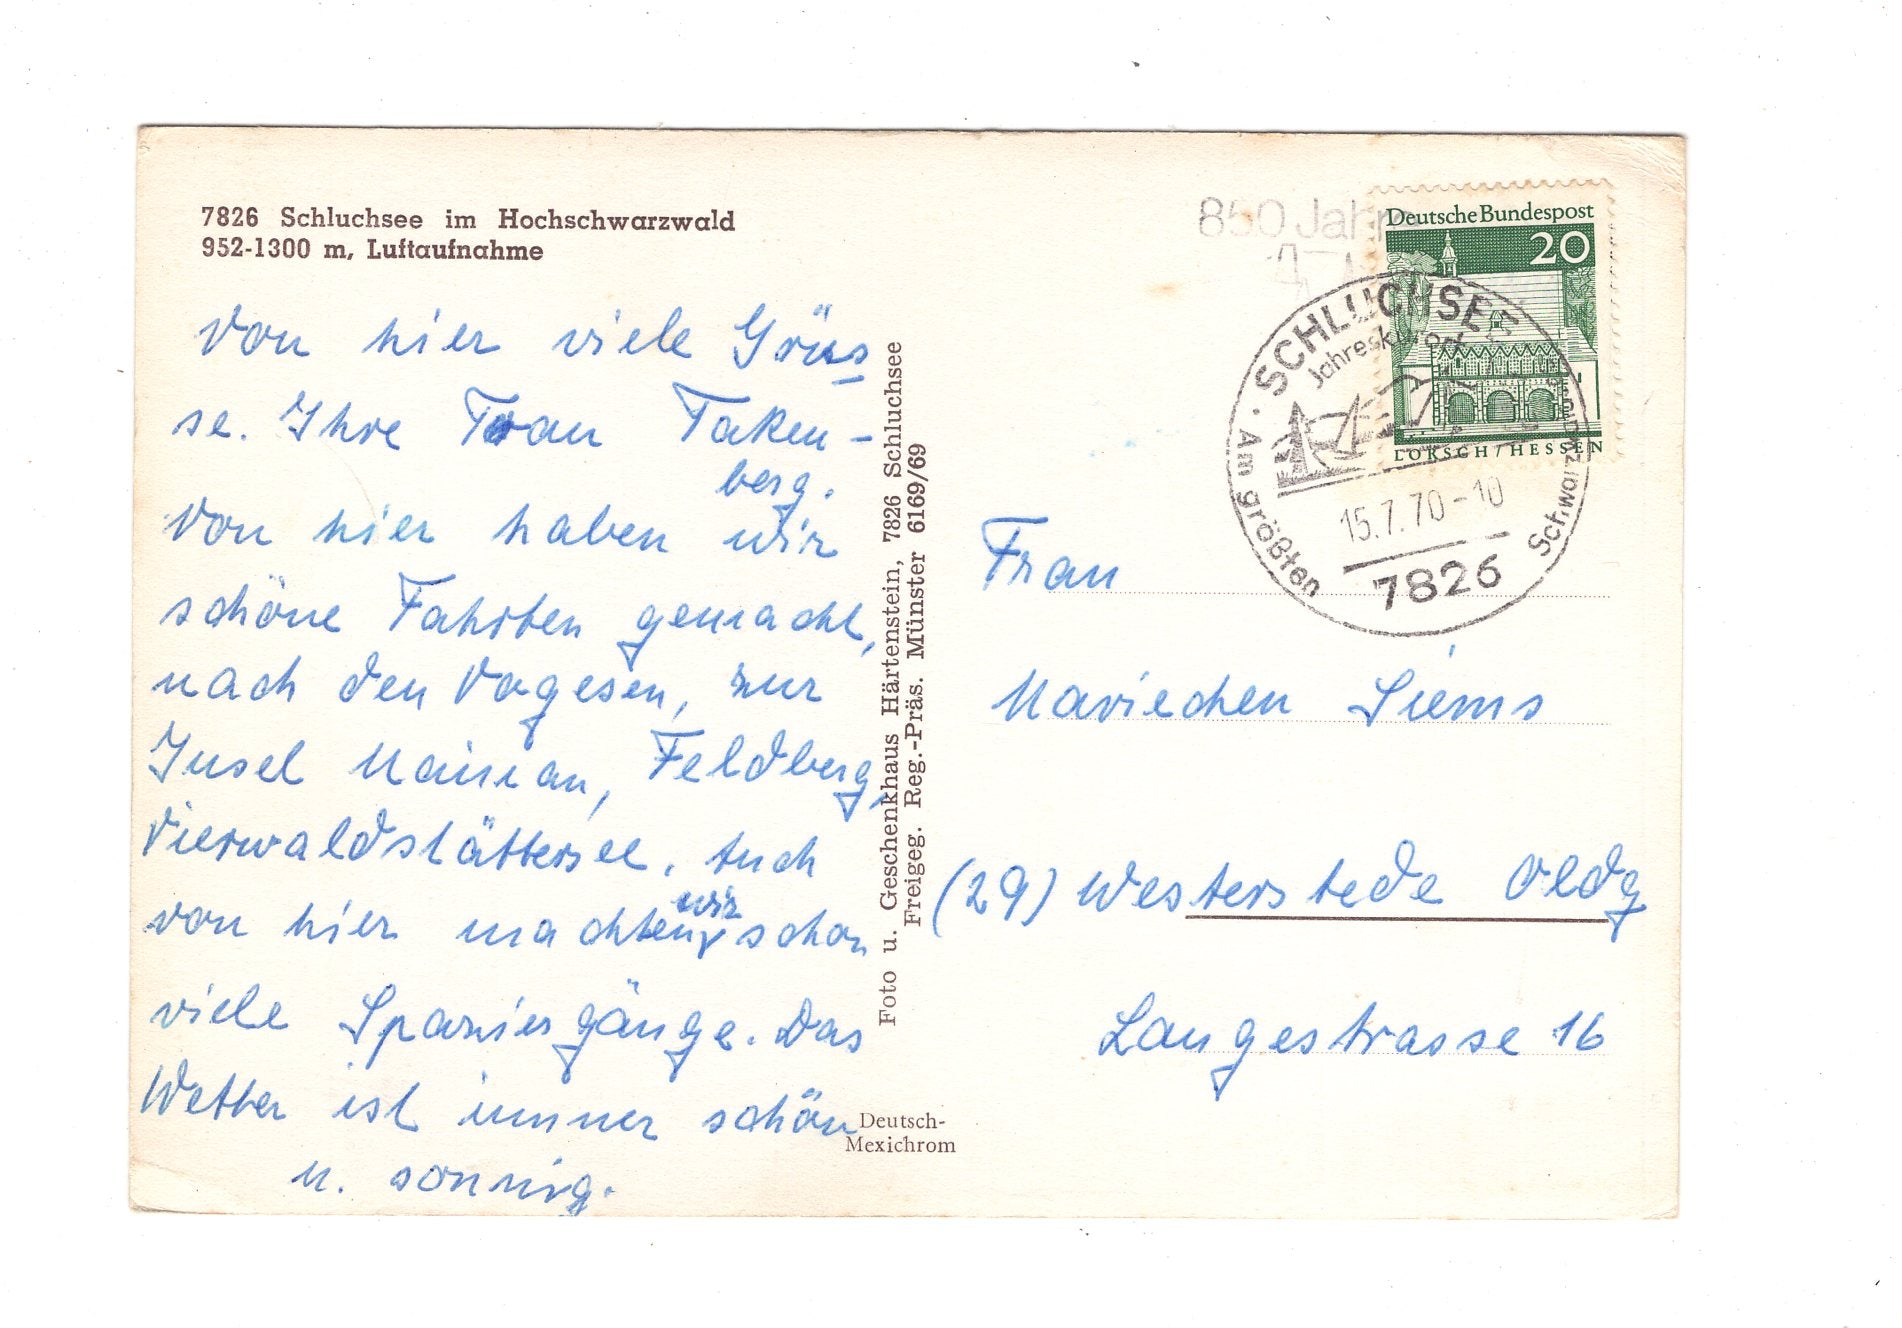 7826 Schluchsee im Hochschwarzwald
952-1300 m, Luftaufnahme
Von hier viele Grüs
se. Ihre Frau Faken-
berg.
Von hier haben wir
schöne Fahrten gemacht,
nach den Vogesen, zur
Insel Mainau, Feldberg,
Vierwaldstättersee. Auch
von hier machten wir schon
viele Spaziergänge. Das
Wetter ist immer schön
u. sonnig.
Foto u. Geschenkhaus Härtenstein, 7826 Schluchsee
Freigeg. Reg.-Präs. Münster 6169/69
Deutsch-
Mexichrom
850 Jahre
Deutsche Bundespost
20
LORSCH/HESSEN
SCHLUCHSEE
Jahreskurort
Am größten
Schwarzwald
15.7.70-10
7826
Frau
Mariechen Siems
(29) Westerstede Oldg
Langestrasse 16